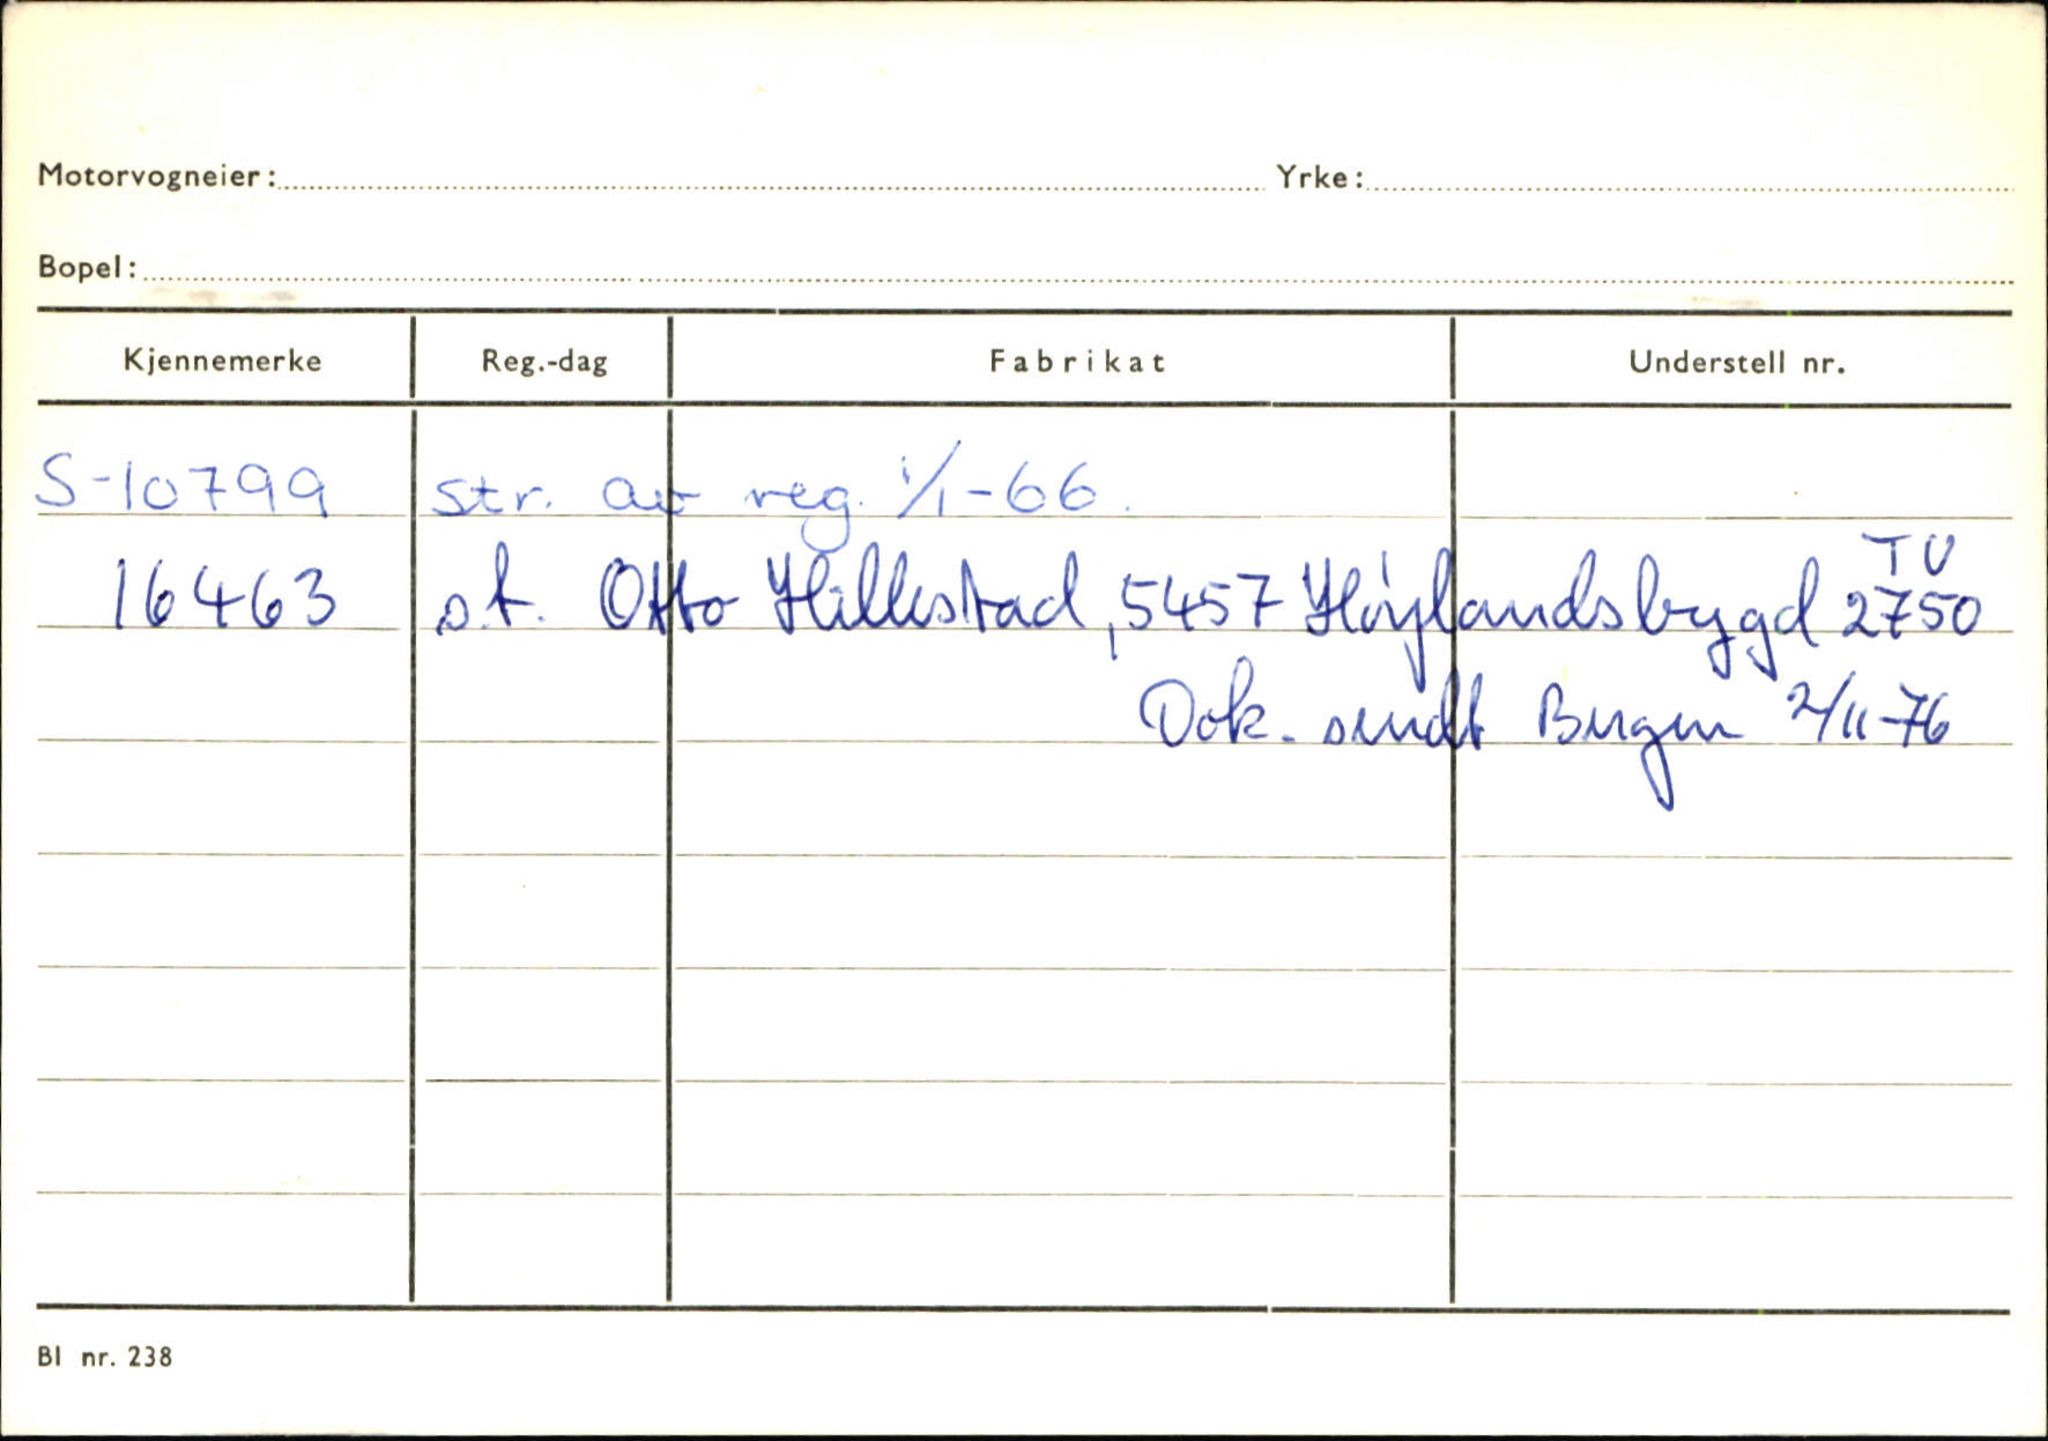 Motorvogneier: Yrke:
Bopel:
Kjennemerke Reg.-dag Fabrikat Understell nr.
S-10799 str. av reg. 1/1-66.
TU
16463 s.t. Otto Hillestad, 5457 Høylandsbygd 2750
Dok. sendt Bergen 2/11-76
Bl nr. 238